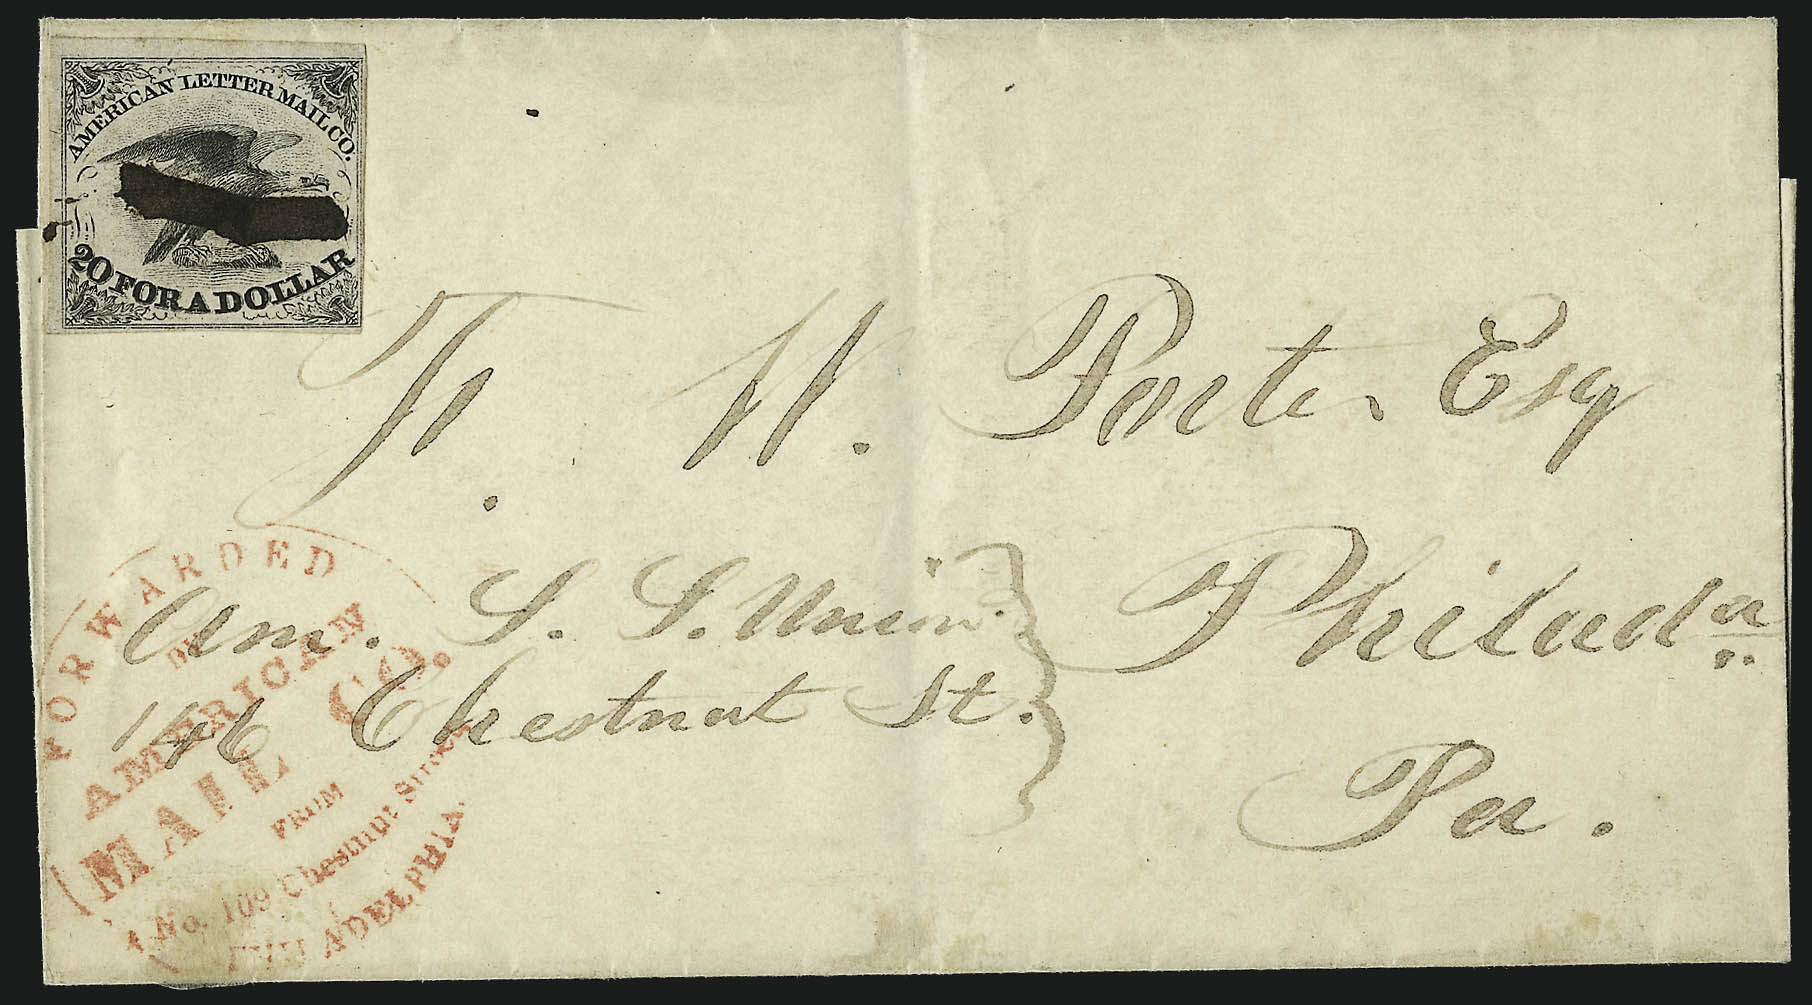 AMERICAN LETTER MAIL CO.
20 FOR A DOLLAR
F. W. Porter Esq
Am. S. S. Union.
146 Chestnut St.
Philada
Pa.
FORWARDED
BY
AMERICAN
MAIL CO.
FROM
No. 109 Chestnut Street
PHILADELPHIA